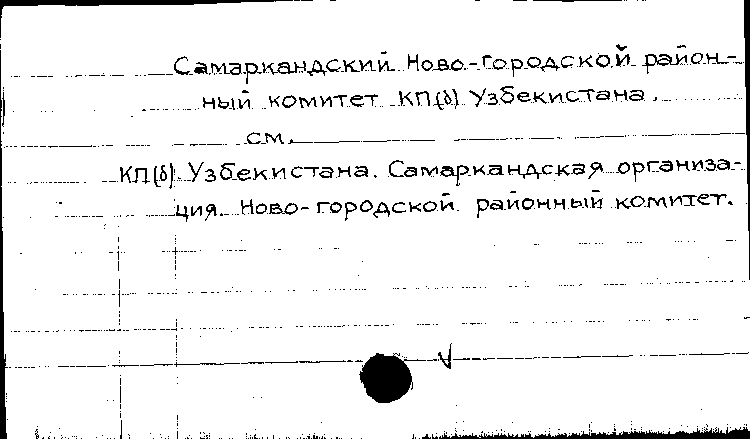 Самаркандский Ново-городской район-
ный комитет КП(б) Узбекистана.
см.
КП(б) Узбекистана. Самаркандская организа-
ция. Ново-городской районный комитет.